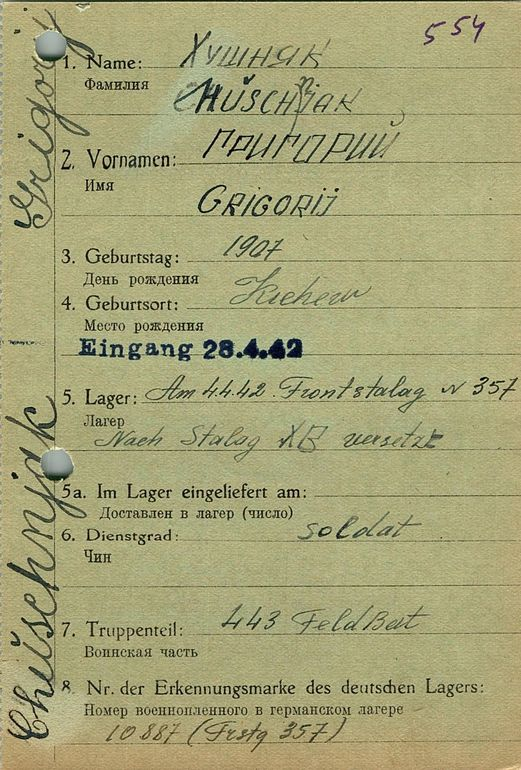 554
1. Name: Хушняк
Фамилия
CHÚSCHNJAK
2. Vornamen: ГРИГОРИЙ
Имя
GRIGORIJ
3. Geburtstag: 1907
День рождения
4. Geburtsort:
Место рождения
Eingang 28.4.42
5. Lager: Am 4.4.42. Frontstalag N 357
Лагер
Nach Stalag XB versetzt
5a. Im Lager eingeliefert am:
Доставлен в лагер (число)
6. Dienstgrad: soldat
Чин
7. Truppenteil: 443 Feld Bat
Воинская часть
8. Nr. der Erkennungsmarke des deutschen Lagers:
Номер военнопленного в германском лагере
10887 (Frstg 357)
Chúschnjak Grigorij